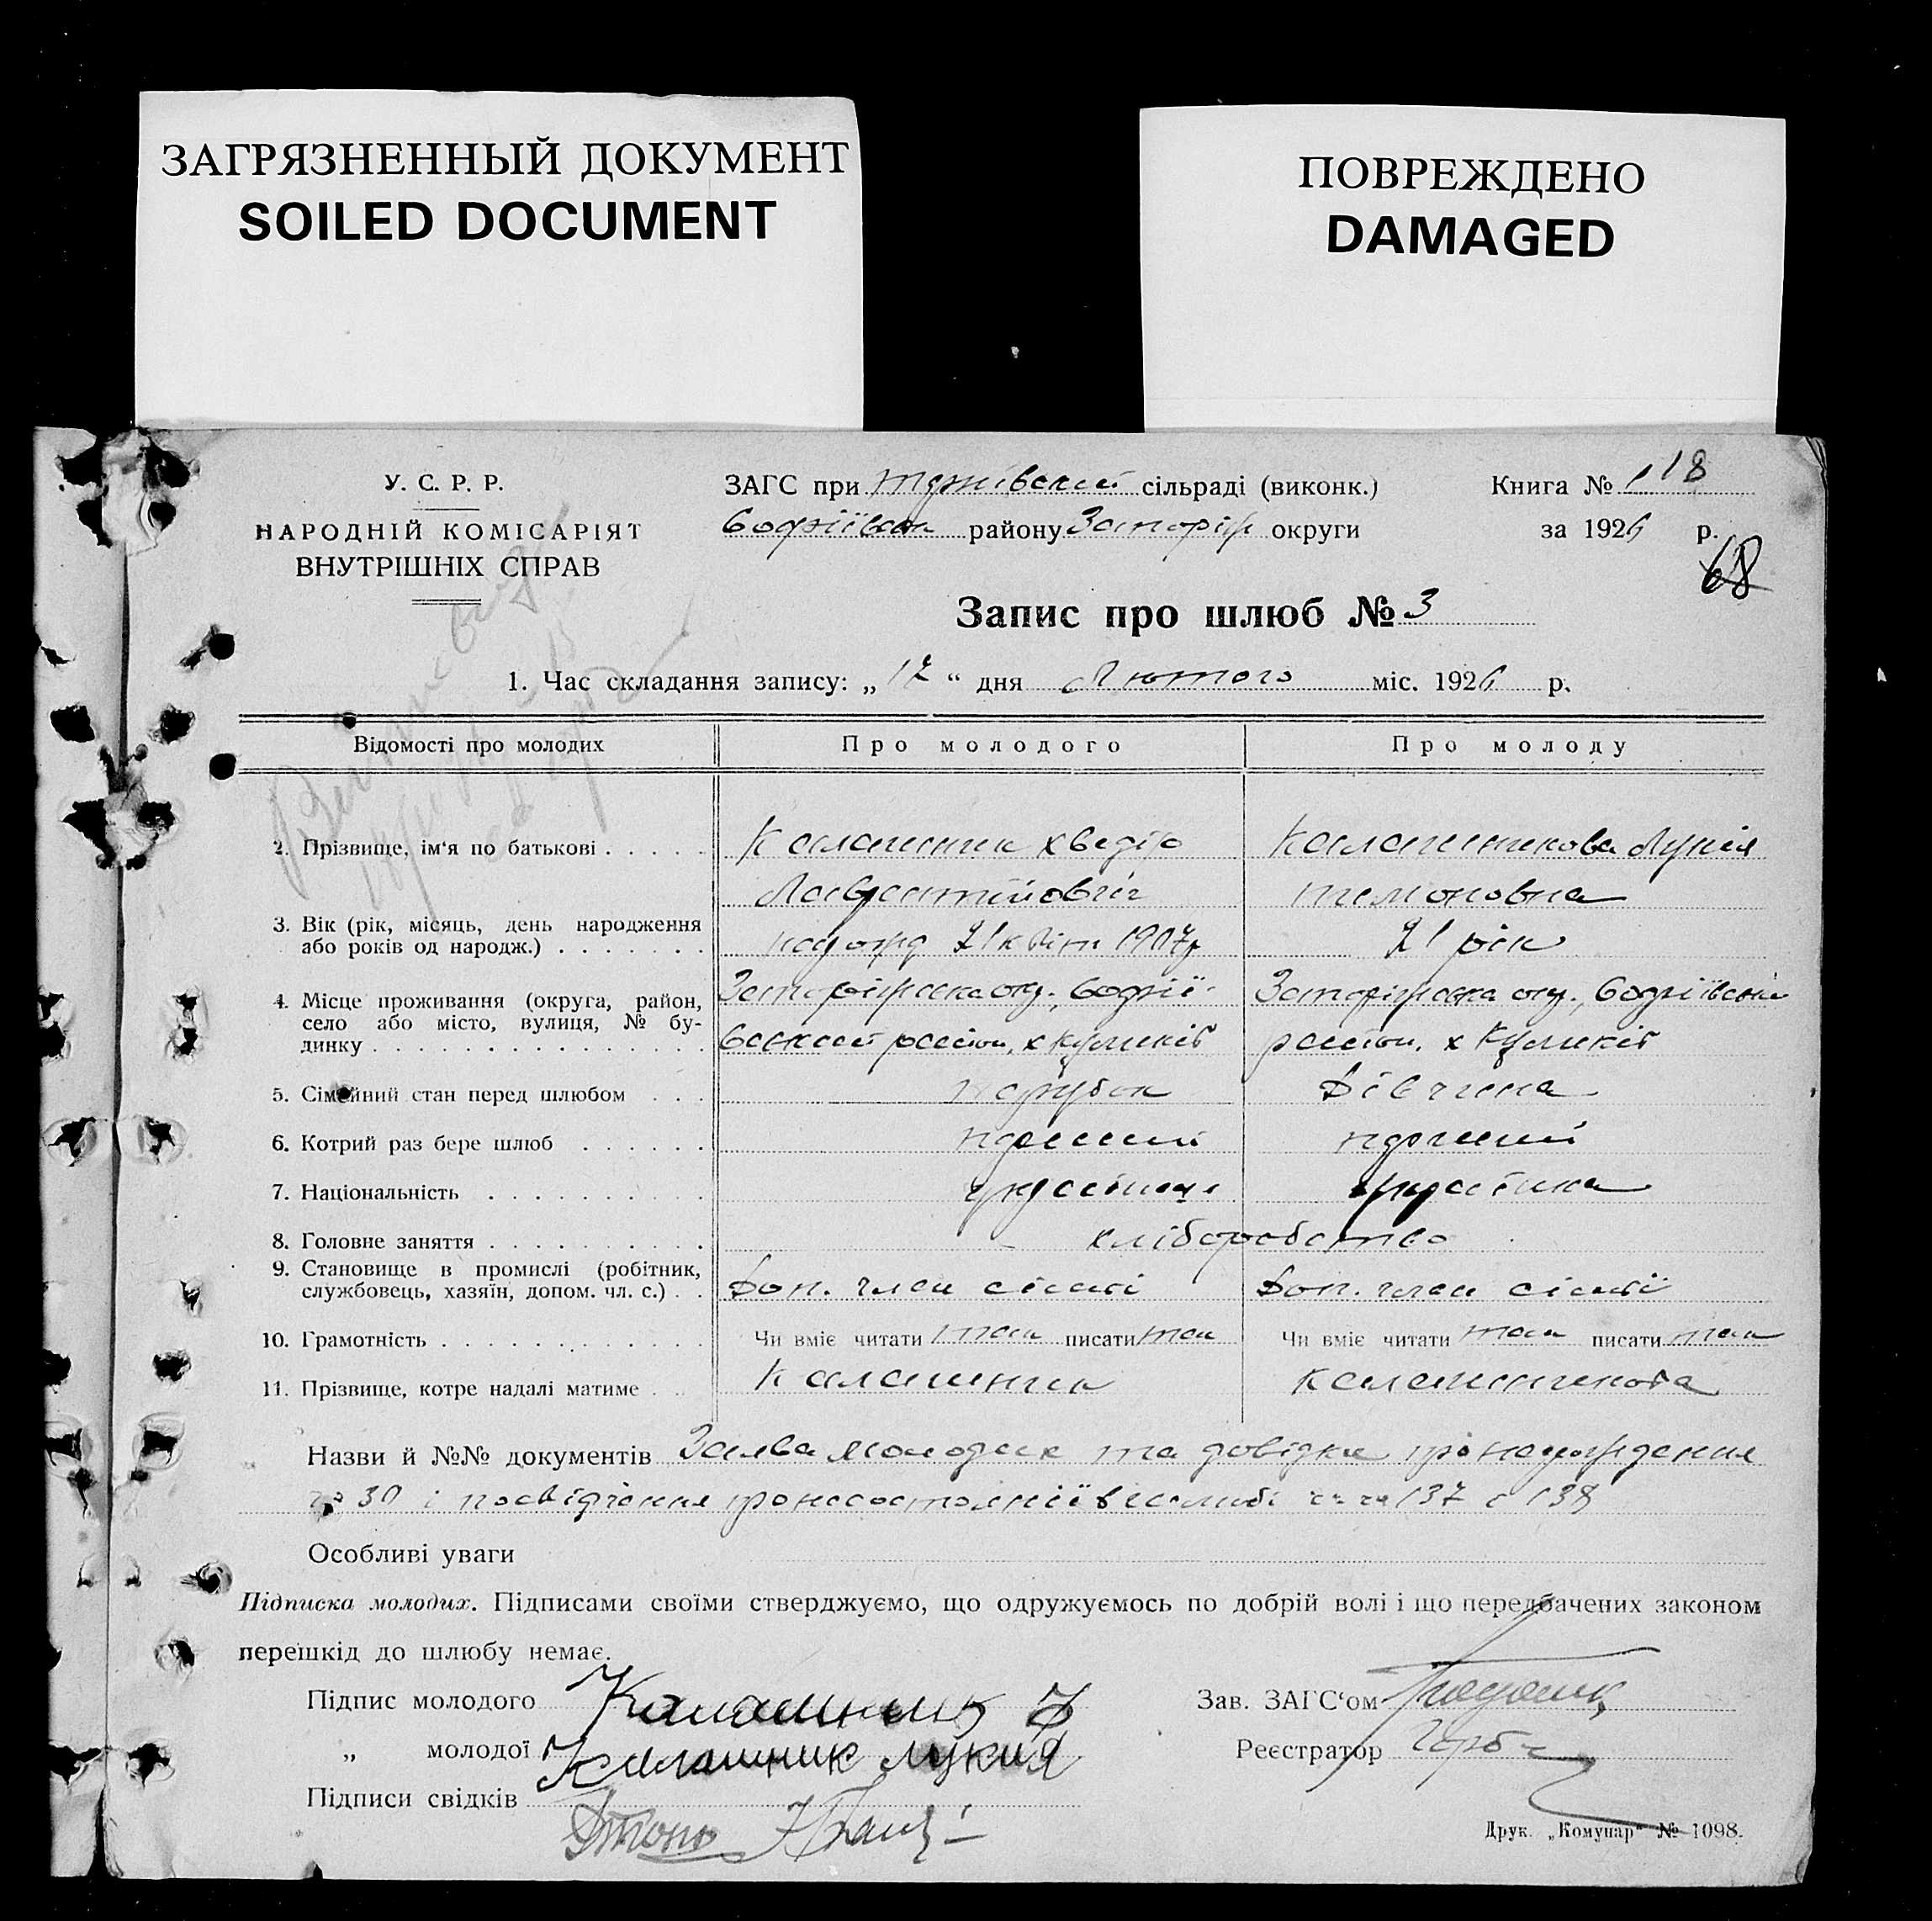 ЗАГРЯЗНЕННЫЙ ДОКУМЕНТ
SOILED DOCUMENT
ПОВРЕЖДЕНО
DAMAGED
У. С. Р. Р.
НАРОДНІЙ КОМІСАРІЯТ
ВНУТРІШНІХ СПРАВ
ЗАГС при сільраді (виконк.)
Софіївськ району Запоріж округи
Книга № 118
за 1926 р.
68
Запис про шлюб № 3
1. Час складання запису: „17“ дня Лютого міс. 1926 р.
Відомості про молодих Про молодого Про молоду
2. Прізвище, ім‘я по батькові . . . . . Калашник Хведір Калашникова Лукія
Лаврентійовіч
3. Вік (рік, місяць, день народження
або років од народж.) . . . . . . . народ 21 квіт 1907р 21 рік
4. Місце проживання (округа, район, Запоріжська окр., Софії- Запоріжська окр., Софіївський
село або місто, вулиця, № бу-
динку . . . . . . . . . . . . . . . вський район, х район, х
5. Сімейний стан перед шлюбом . . . парубок Дівчина
6. Котрий раз бере шлюб . . . . . . перший перший
7. Національність . . . . . . . . . . українець українка
8. Головне заняття . . . . . . . . . . хліборобство
9. Становище в промислі (робітник,
службовець, хазяїн, допом. чл. с.) . . Доп. член сімті Доп. член сімтї
10. Грамотність . . . . . . . . . . . . Чи вміє читати так писати так Чи вміє читати так писати так
11. Прізвище, котре надалі матиме . . . Калашник Калашникова
Назви й №№ документів Заява молодих та довідка про народження
№ 30 і посвідчення про 137 і 138
Особливі уваги
Підписка молодих. Підписами своїми стверджуємо, що одружуємось по добрій волі і що передбачених законом
перешкід до шлюбу немає.
Підпис молодого Калашник Ф
„ молодої Калашник Лукия
Підписи свідків
Зав. ЗАГС‘ом
Реєстратор
Друк. „Комунар“ № 1098.